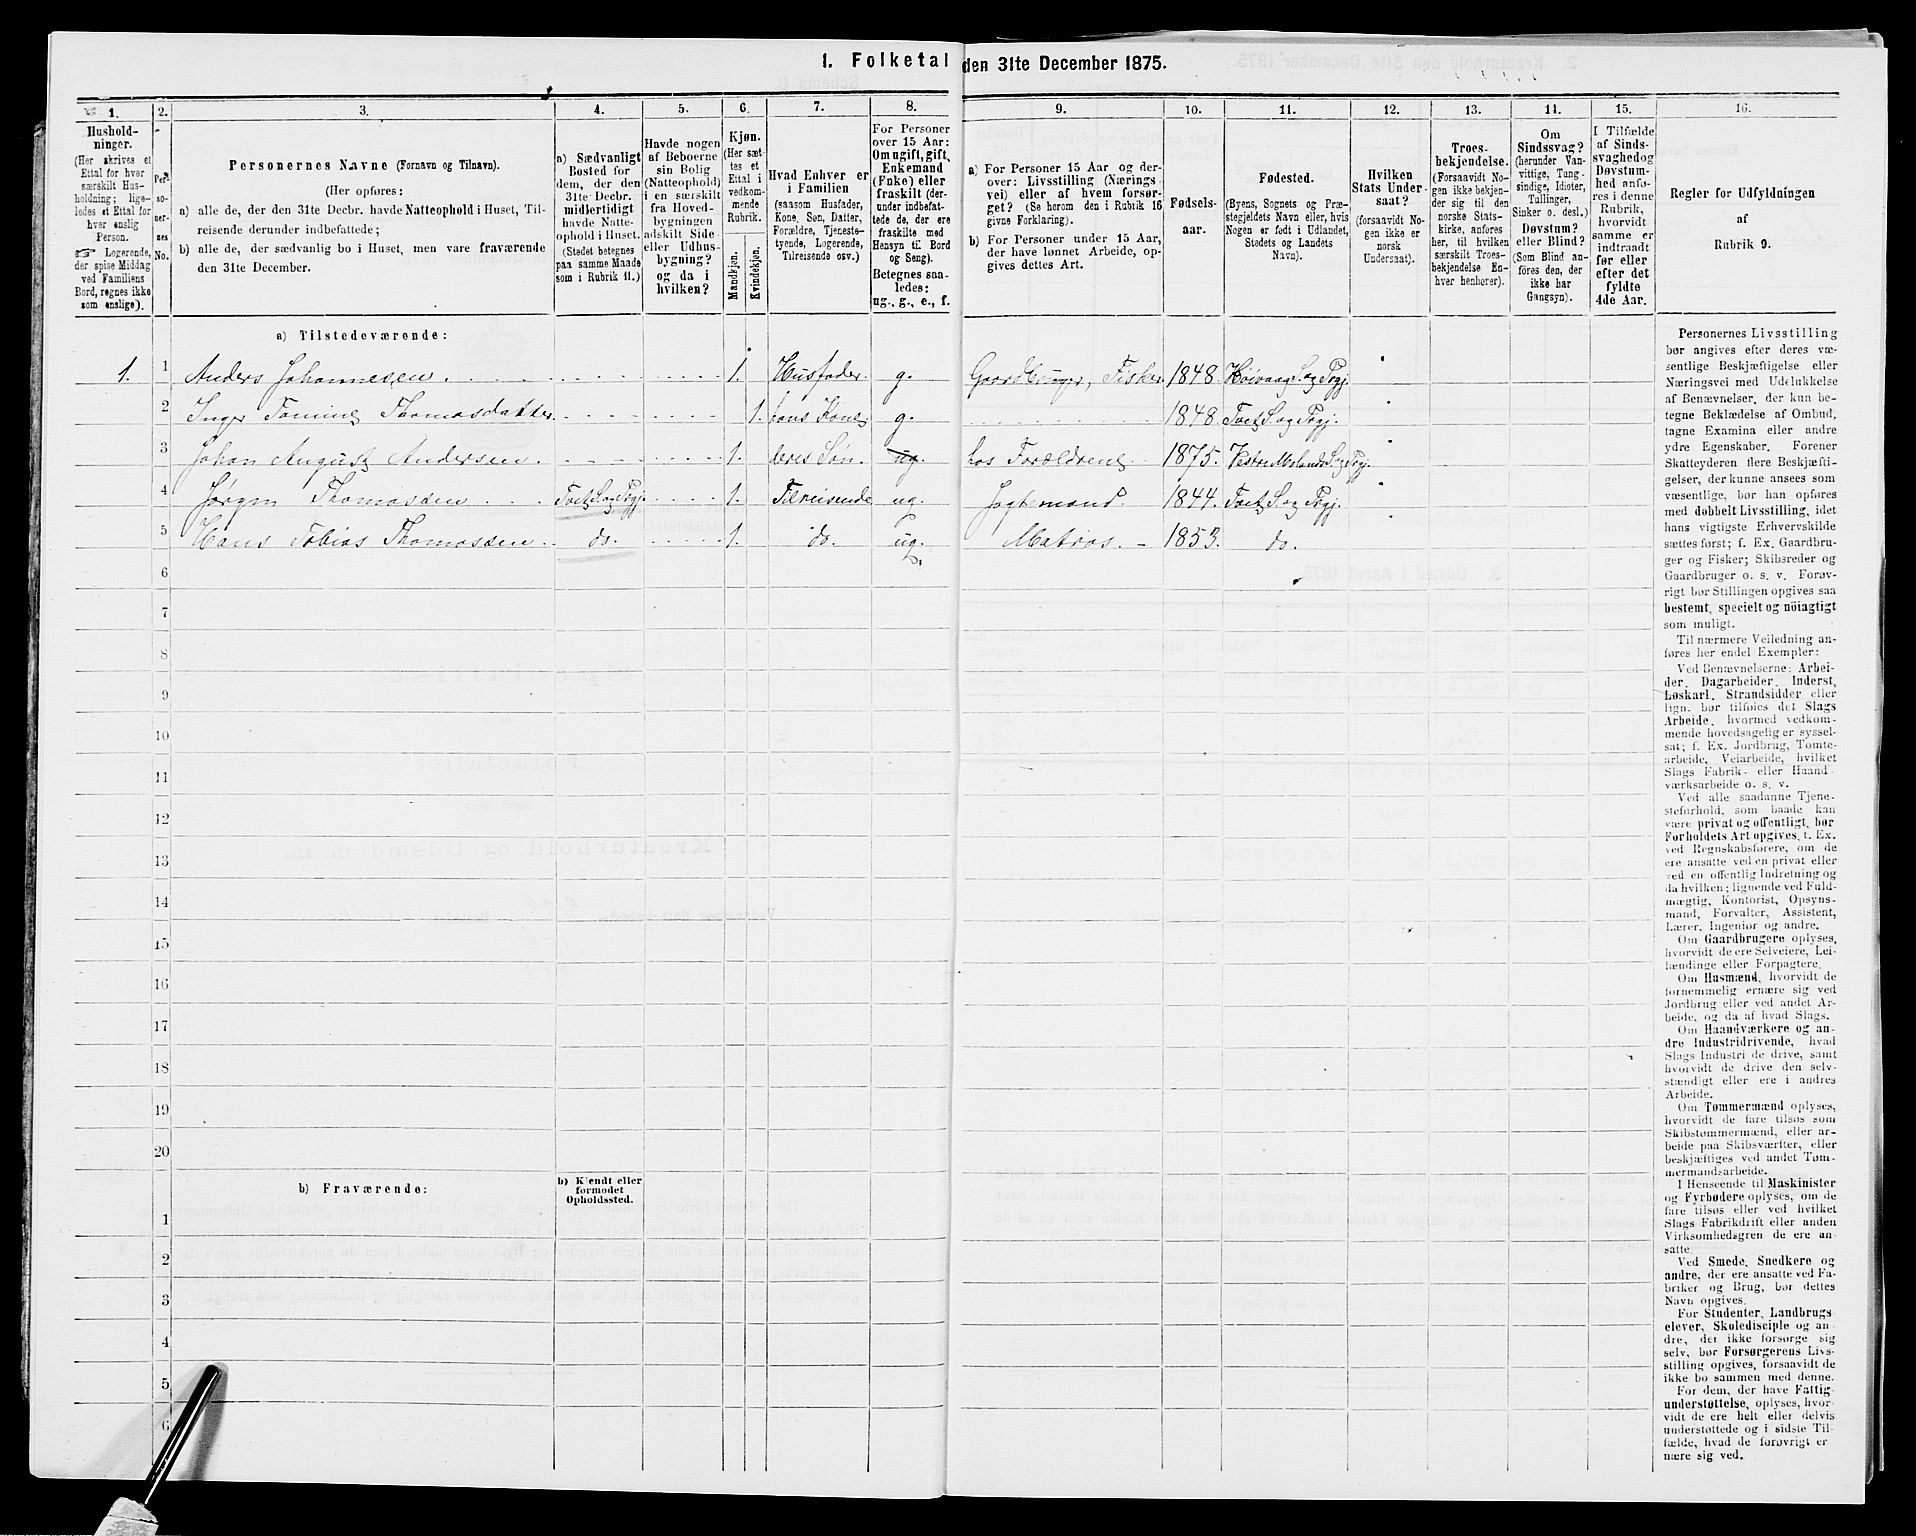 1. Folketal den 31te December 1875.
1. 2. 3. 4. 5. 6. 7. 8. 9. 10. 11. 12. 13. 14. 15. 16.
Hushold-
ninger.
(Her skrives et
Ettal for hver
særskilt Hus-
holdning; lige-
ledes et Ettal for
hver enslig
Person.
☞ Logerende,
der spise Middag
ved Familiens
Bord, regnes ikke
som enslige).
Per-
so-
ner-
nes
No.
Personernes Navne (Fornavn og Tilnavn).
(Her opføres:
a) alle de, der den 31te Decbr. havde Natteophold i Huset, Til-
reisende derunder indbefattede;
b) alle de, der sædvanlig bo i Huset, men vare fraværende
den 31te December.
a) Sædvanligt
Bosted for
dem, der den
31te Decbr.
midlertidigt
havde Natte-
ophold i Huset.
(Stedet betegnes
paa samme Maade
som i Rubrik 11.)
Havde nogen
af Beboerne
sin Bolig
(Natteophold)
i en særskilt
fra Hoved-
bygningen
adskilt Side
eller Udhus-
bygning?
og da i
hvilken?
Kjøn.
(Her sæt-
tes et
Ettal i
vedkom-
mende
Rubrik.
Mandkjøn.
Kvindekjøn.
Hvad Enhver er
i Familien
(saasom Husfader,
Kone, Søn, Datter,
Forældre, Tjeneste-
tyende, Logerende,
Tilreisende osv.)
For Personer
over 15 Aar:
Om ugift, gift,
Enkemand
(Enke) eller
fraskilt (der-
under indbefat-
tede de, der ere
fraskilte med
Hensyn til Bord
og Seng).
Betegnes saa-
ledes:
ug., g., e., f.
a) For Personer 15 Aar og der-
over: Livsstilling (Nærings-
vei) eller af hvem forsør-
get? (Se herom den i Rubrik 16
givne Forklaring).
b) For Personer under 15 Aar,
der have lønnet Arbeide, op-
gives dettes Art.
Fødsels-
aar.
Fødested.
(Byens, Sognets og Præ-
stegjeldets Navn eller, hvis
Nogen er født i Udlandet,
Stedets og Landets
Navn).
Hvilken
Stats Under-
saat?
(forsaavidt No-
gen ikke er
norsk
Undersaat).
Troes-
bekjendelse.
(Forsaavidt No-
gen ikke bekjen-
der sig til den
norske Stats-
kirke, anføres
her, til hvilken
særskilt Troes-
bekjendelse En-
hver henhører).
Om
Sindssvag?
(herunder Van-
vittige, Tung-
sindige, Idioter,
Tullinger,
Sinker o. desl.)
Døvstum?
eller Blind?
(Som Blind an-
føres den, der
ikke har
Gangsyn).
I Tilfælde
af Sinds-
svaghed og
Døvstum-
hed anfø-
res i denne
Rubrik,
hvorvidt
samme er
indtraadt
før eller
efter det
fyldte
4de Aar.
Regler for Udfyldningen
af
Rubrik 9.
a) Tilstedeværende:
1. 1 Anders Johannesen 1. Husfader g. Gaardbruger, Fisker 1848. Høivaag S. og Prgj.
2 Inger Tomine Thomasdatter 1. hans Kone g. 1848 Tvet S. og Prgj.
3 Johan August Andersen 1. deres Søn ug. hos Forældrene 1875. Vestre Molands S. og Prgj.
4 Jørgen Thomassen Tvet S. og Prgj. 1. Tilreisende ug. Jagtemand 1844. Tvet S. og Prgj.
5 Hans Tobias Thomassen do. 1. do. ug. Matros. 1853. do.
6
7
8
9
10
11
12
13
14
15
16
17
18
19
20
b) Fraværende:
b) Kjendt eller
formodet
Opholdssted.
1
2
3
4
5
6
Personernes Livsstilling
bør angives efter deres væ-
sentlige Beskjæftigelse eller
Næringsvei med Udelukkelse
af Benævnelser, der kun be-
tegne Beklædelse af Ombud,
tagne Examina eller andre
ydre Egenskaber. Forener
Skatteyderen flere Beskjæfti-
gelser, der kunne ansees som
væsentlige, bør han opføres
med dobbelt Livsstilling, idet
hans vigtigste Erhvervskilde
sættes først; f. Ex. Gaardbru-
ger og Fisker; Skibsreder og
Gaardbruger o. s. v. Forøv-
rigt bør Stillingen opgives saa
bestemt, specielt og nöiagtigt
som muligt.
Til nærmere Veiledning an-
føres her endel Exempler:
Ved Benævnelserne: Arbei-
der, Dagarbeider, Inderst,
Løskarl, Strandsidder eller
lign. bør tilføies det Slags
Arbeide, hvormed vedkom-
mende hovedsagelig er syssel-
sat; f. Ex. Jordbrug, Tomte-
arbeide, Veiarbeide, hvilket
Slags Fabrik- eller Haand-
værksarbeide o. s. v.
Ved alle saadanne Tjene-
steforhold, som baade kan
være privat og offentligt, bør
Forholdets Art opgives, t. Ex.
ved Regnskabsførere, om de
ere ansatte ved en privat eller
ved en offentlig Indretning og
da hvilken; lignende ved Fuld-
mægtig, Kontorist, Opsyns-
mand, Forvalter, Assistent,
Lærer, Ingeniør og andre.
Om Gaardbrugere oplyses,
hvorvidt de ere Selveiere, Lei-
lændinge eller Forpagtere.
Om Husmænd, hvorvidt de
fornemmelig ernære sig ved
Jordbrug eller ved andet Ar-
beide, og da af hvad Slags.
Om Haandværkere og an-
dre Industridrivende, hvad
Slags Industri de drive, samt
hvorvidt de drive den selv-
stændigt eller ere i andres
Arbeide.
Om Tømmermænd oplyses,
hvorvidt de fare tilsøs som
Skibstømmermænd, eller ar-
beide paa Skibsværfter, eller
beskjæftiges ved andet Tøm-
mermandsarbeide.
I Henseende til Maskinister
og Fyrbødere oplyses, om de
fare tilsøs eller ved hvilket
Slags Fabrikdrift eller anden
Virksomhedsgren de ere an-
satte.
Ved Smede, Snedkere og
andre, der ere ansatte ved Fa-
briker og Brug, bør dettes
Navn opgives.
For Studenter, Landbrugs-
elever, Skoledisciple og an-
dre, der ikke forsørge sig
selv, bør Forsørgerens Livs-
stilling opgives, forsaavidt de
ikke bo sammen med denne.
For dem, der have Fattig-
understøttelse, oplyses, hvor-
vidt de ere helt eller delvis
understøttede og i sidste Til-
fælde, hvad de forøvrigt er-
nære sig ved.